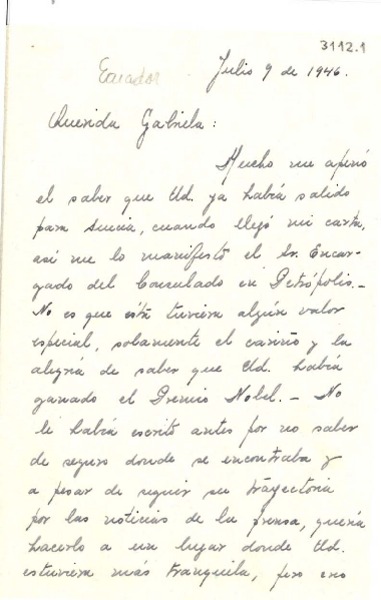 3112.1
Ecuador
Julio 9 de 1946.
Querida Gabriela:
Mucho me apenó
el saber que Ud. ya habiá salido
para Suecia, cuando llegó mi carta,
así me lo manifestó el Sr. Encar-
gado del Consulado en Petrópolis.-
No es que ésta tuviera algún valor
especial, solamente el cariño y la
alegriá de saber que Ud. habiá
ganado el Premio Nobel.- No
le habiá escrito antes por no saber
de seguro donde se encontraba y
a pesar de seguir su trayectoria
por las noticias de la prensa, queriá
hacerlo a un lugar donde Ud.
estuviera más tranquila, pero eso